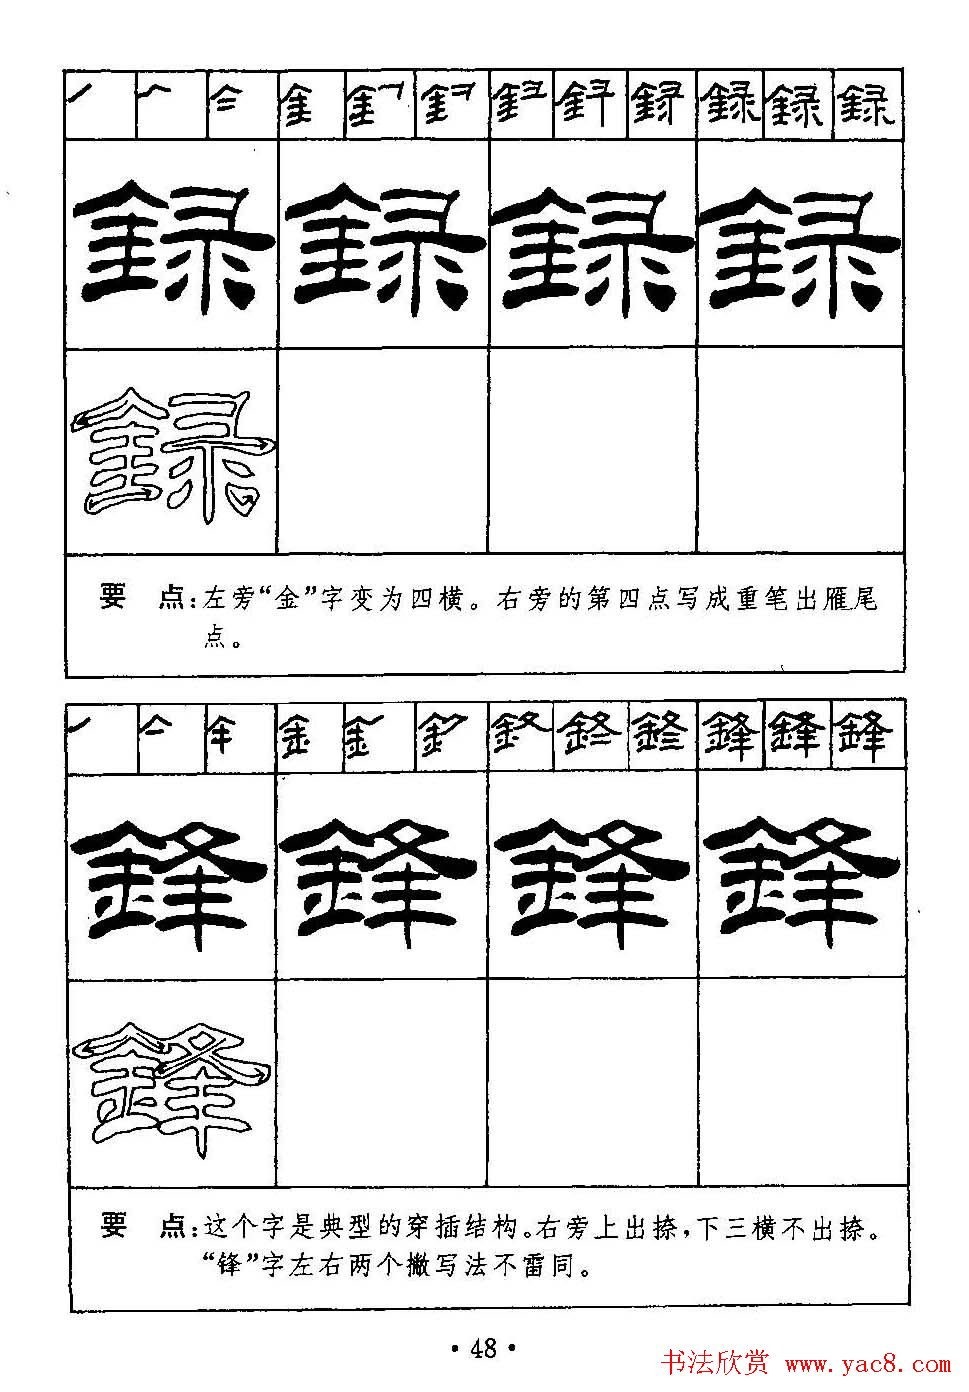 録 録 録 録
録
要 点：左旁“金”字变为四横。右旁的第四点写成重笔出雁尾
点。
鋒 鋒 鋒 鋒
鋒
要 点：这个字是典型的穿插结构。右旁上出捺，下三横不出捺。
“锋”字左右两个撇写法不雷同。
·48·
书法欣赏 www.yac8.com